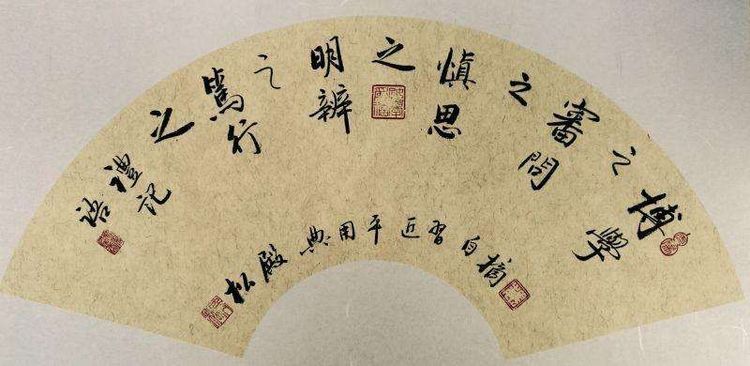 博學
之
審問
之
慎思
之
明辨
之
篤行
之
禮記
語
摘自習近平用典
殿松